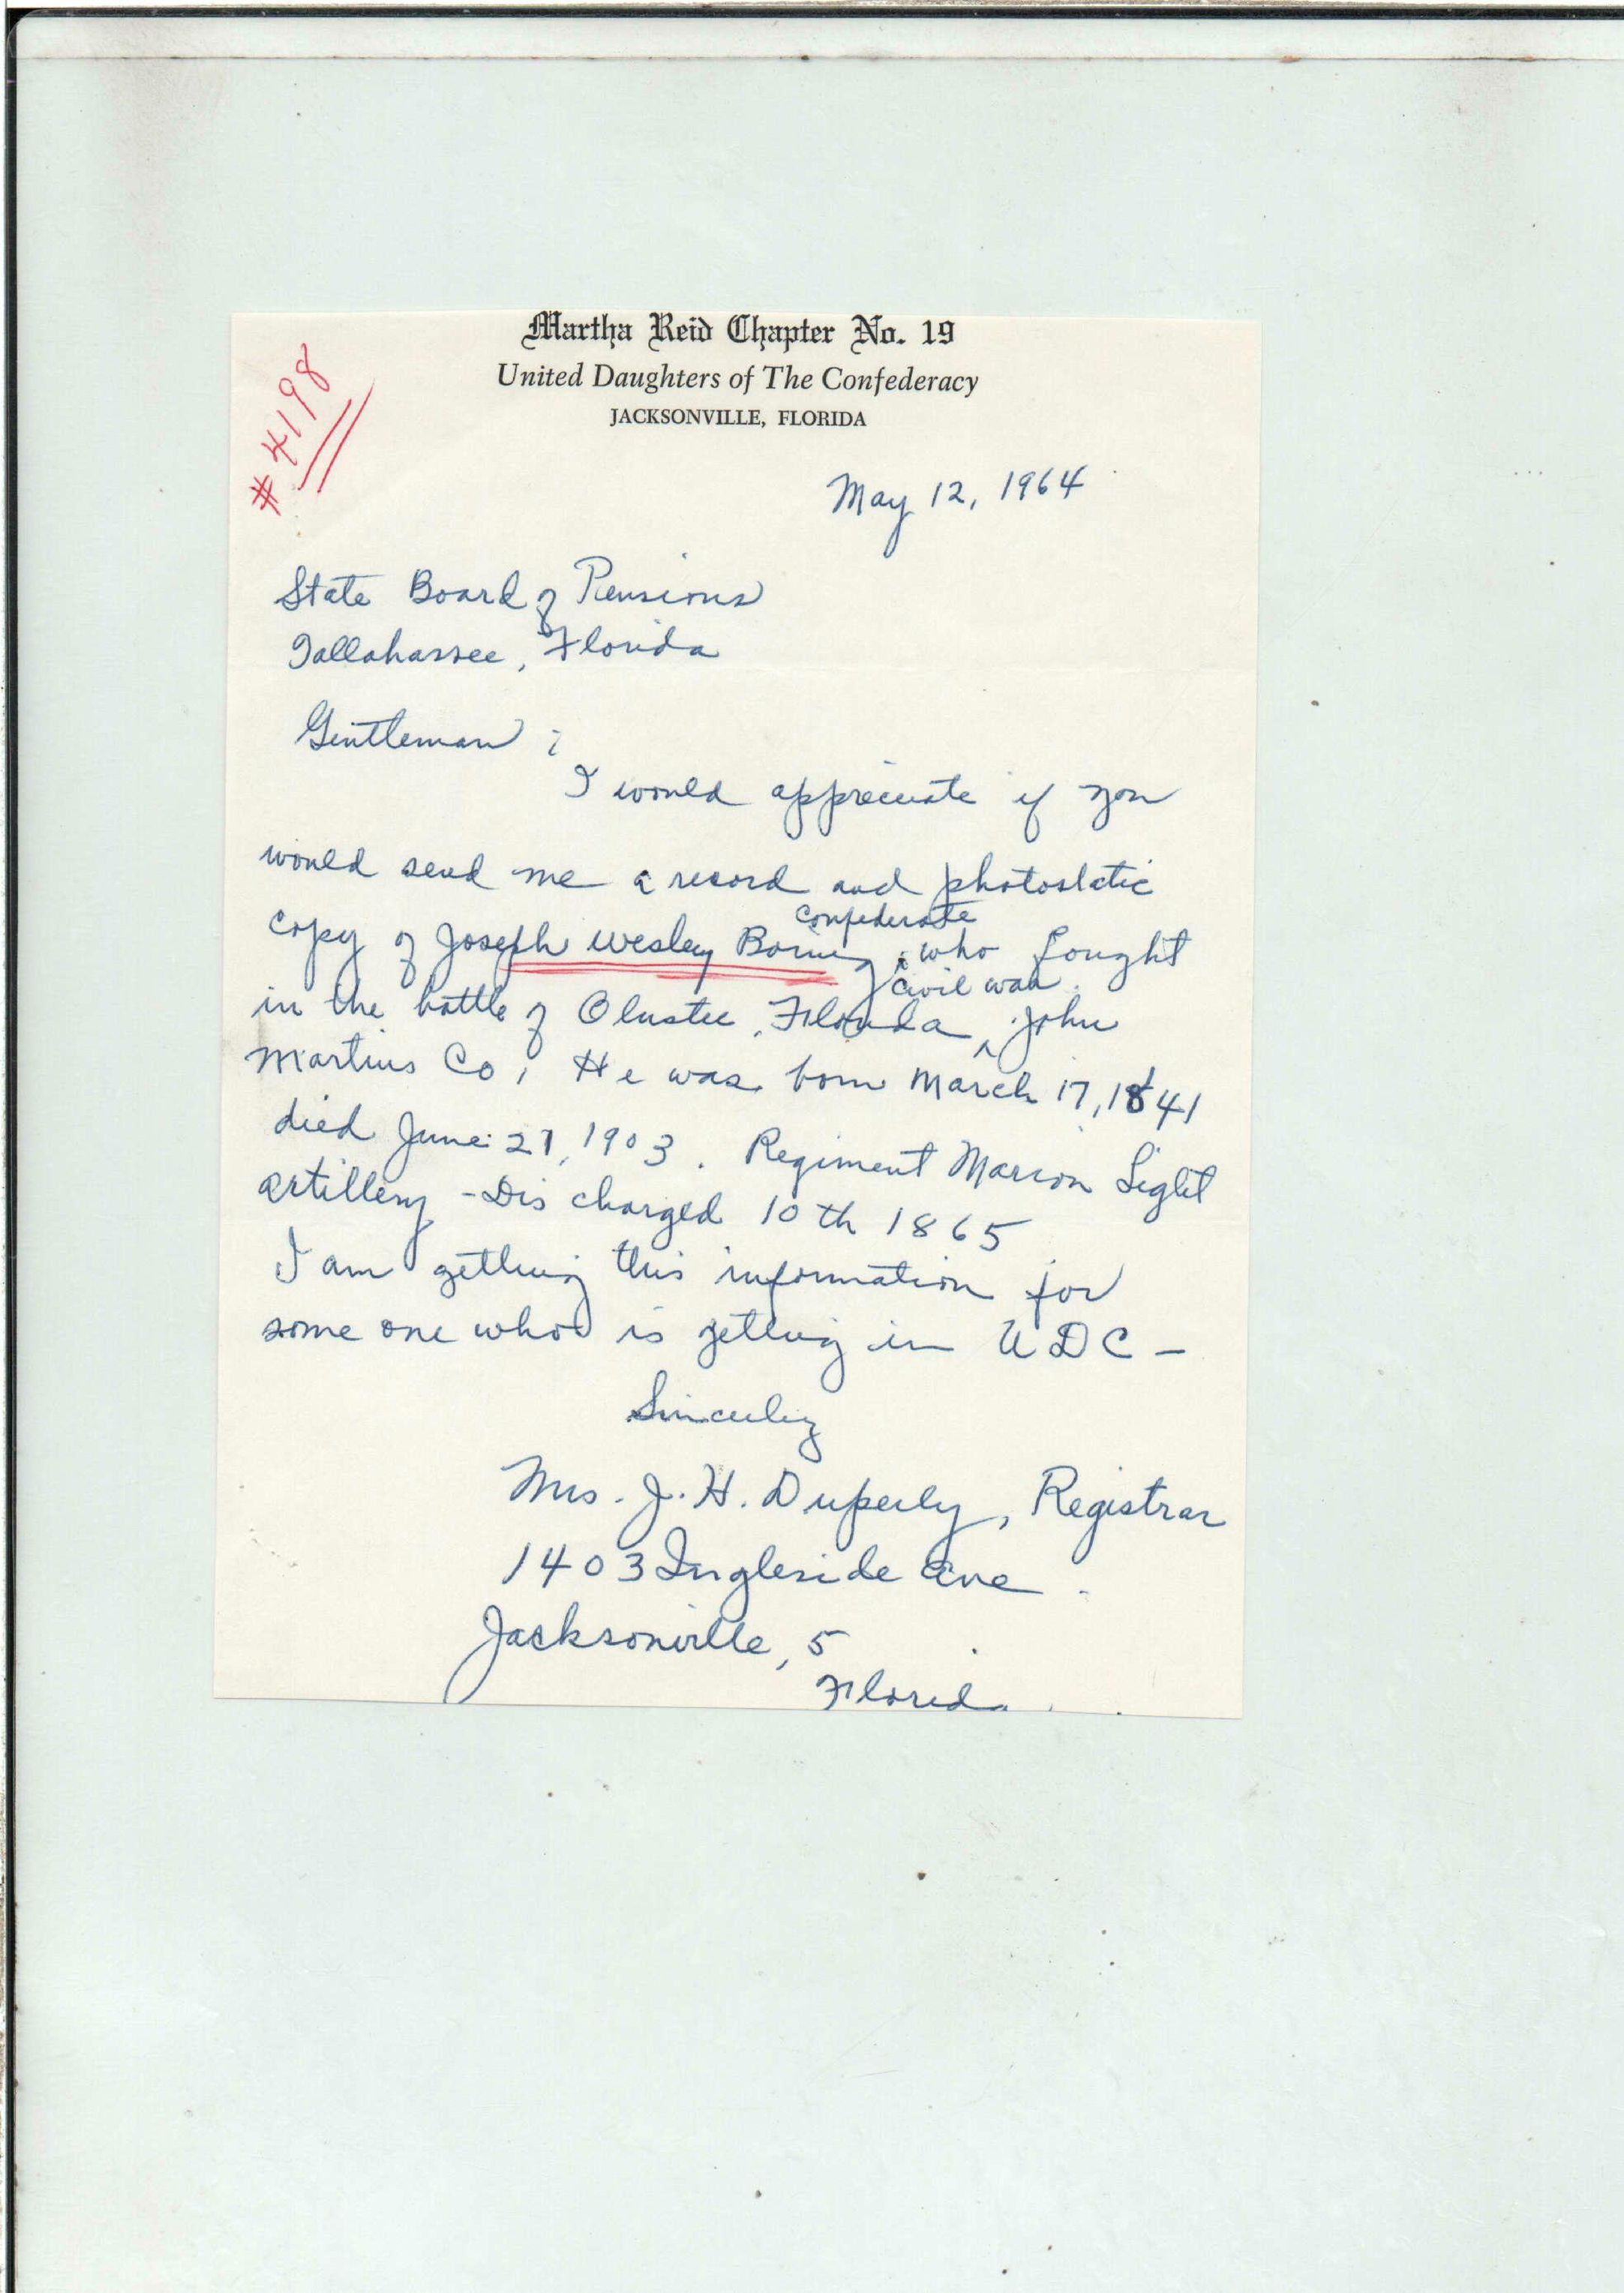 Martha Reid Chapter No. 19
United Daughters of The Confederacy
JACKSONVILLE, FLORIDA
# 4198
May 12, 1964
State Board of Pensions
Tallahassee, Florida
Gentleman :
I would appreciate if you
would send me a record and photostatic
confederate
copy of Joseph Wesley Boring, who fought
civil war
in the battle of Olustee, Florida, John
Martins Co, He was born March 17, 1841
died June 27, 1903. Regiment Marion Light
Artillery - Dis charged 10 th 1865
I am getting this information for
some one who is getting in UDC -
Sincerely
Mrs. J. H. Duperly, Registrar
1403 Ingleside Ave
Jacksonville, 5
Florida